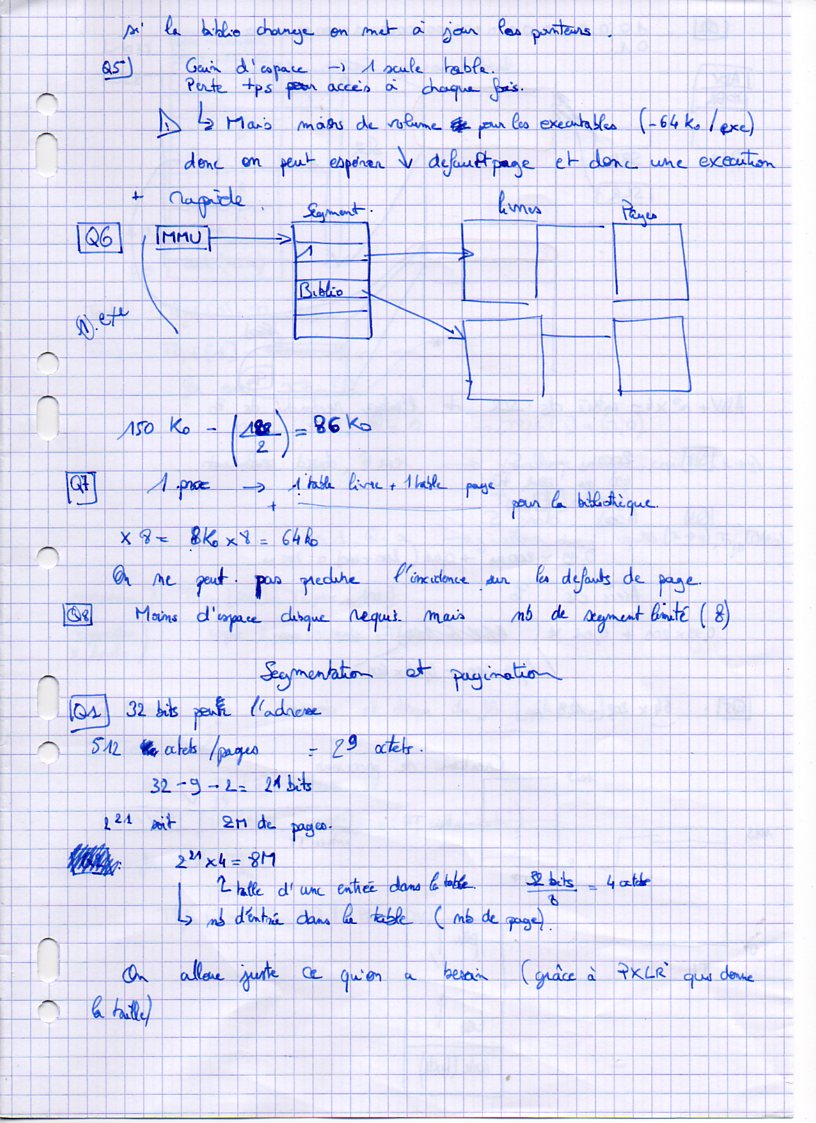 si la biblio change on met à jour les pointeurs.
Q5) Gain d'espace → 1 seule table.
Perte tps par accès à chaque fois.
↳ Mais moins de volume pour les executables (-64 Ko / exe)
donc on peut espérer ↓ default page et donc une execution
+ rapide.
Segment. Livres Pages
Q6 MMU
1
Biblio
150 Ko - (128/2) = 86 Ko
Q7 1 proc → 1 table livre + 1 table page
+ pour la bibliothèque.
x 8 = 8Ko x 8 = 64ko
On ne peut pas predire l'incidence sur les defauts de page.
Q8 Moins d'espace disque requis mais nb de segment limité (8)
Segmentation et pagination
Q1 32 bits pour l'adresse
512 octets/pages = 2^9 octets.
32 - 9 - 2 = 21 bits
2^21 soit 2M de pages.
2^21 x 4 = 8M
taille d'une entrée dans la table. 32 bits / 8 = 4 octets
↳ nb d'entrée dans la table (nb de page).
On alloue juste ce qu'on a besoin (grâce à PXLR qui donne
la taille)